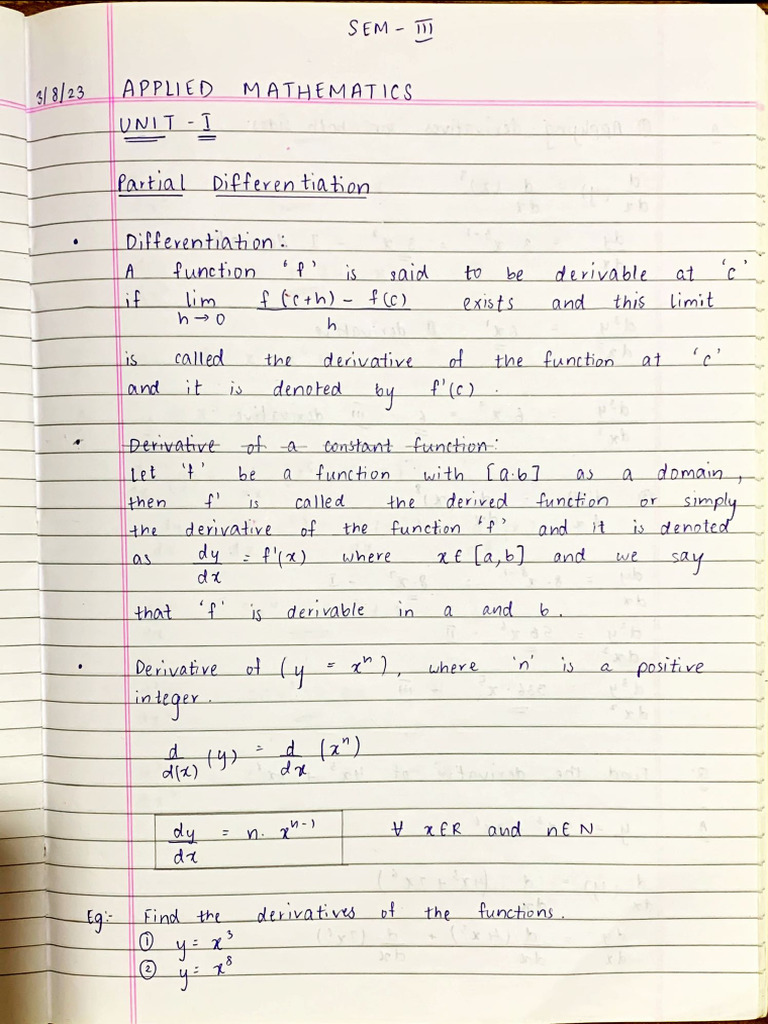 SEM - III
3/8/23 APPLIED MATHEMATICS
UNIT - I
Partial Differentiation
• Differentiation:
A function 'f' is said to be derivable at 'c'
if lim h→0 f(c+h) - f(c) / h exists and this limit
is called the derivative of the function at 'c'
and it is denoted by f'(c).
• Derivative of a constant function:
Let 'f' be a function with [a.b] as a domain,
then f' is called the derived function or simply
the derivative of the function 'f' and it is denoted
as dy/dx = f'(x) where x∈[a,b] and we say
that 'f' is derivable in a and b.
• Derivative of (y = xⁿ), where 'n' is a positive
integer.
d/d(x) (y) = d/dx (xⁿ)
dy/dx = n. xⁿ⁻¹ ∀ x∈R and n∈N
Eg:- Find the derivatives of the functions.
① y = x³
② y = x⁸